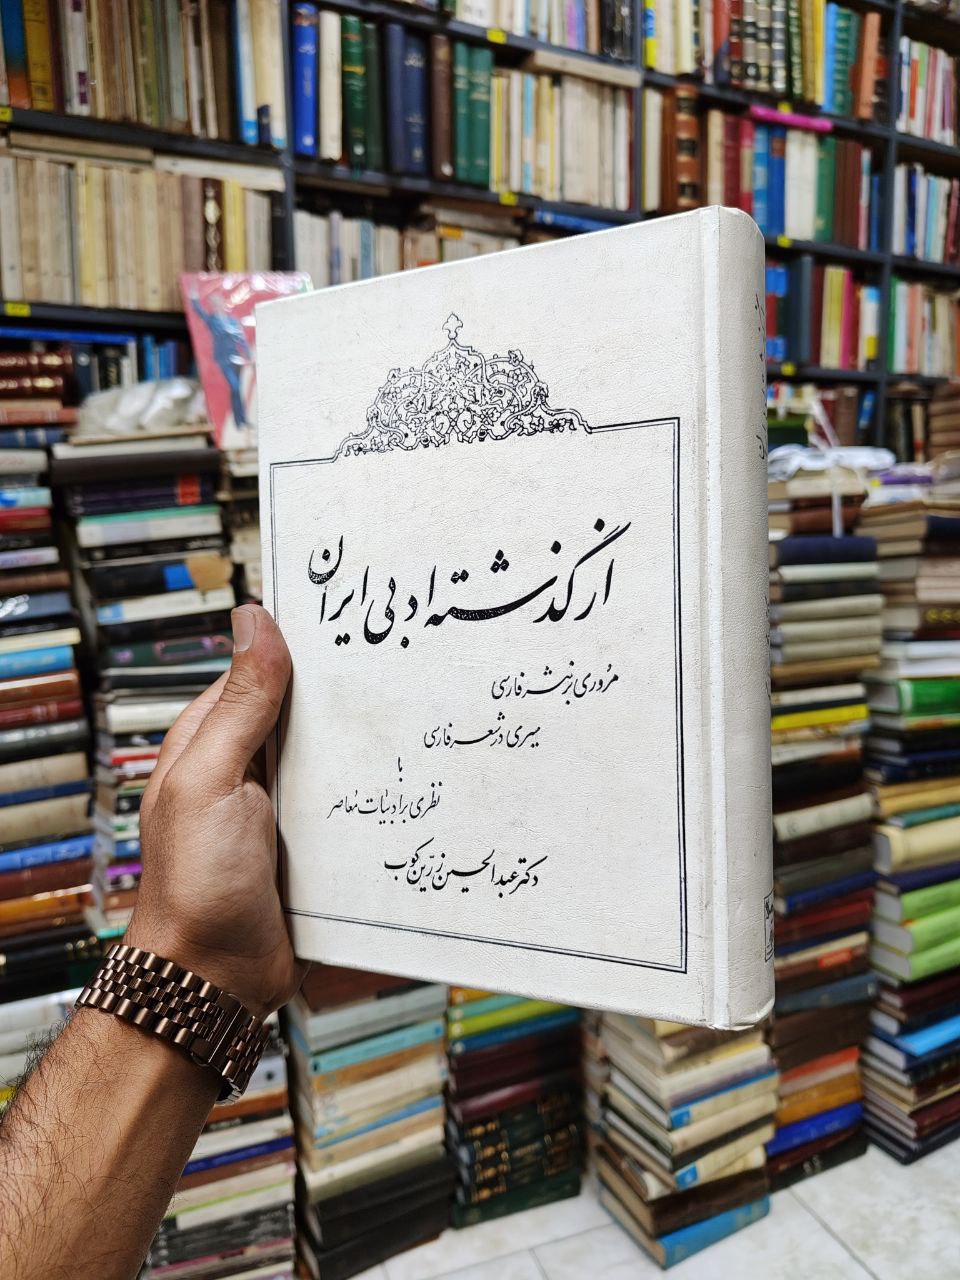 از گذشته ادبی ایران
مروری بر نثر فارسی
سیری در شعر فارسی
با
نظری بر ادبیات معاصر
دکتر عبدالحسین زرین‌کوب